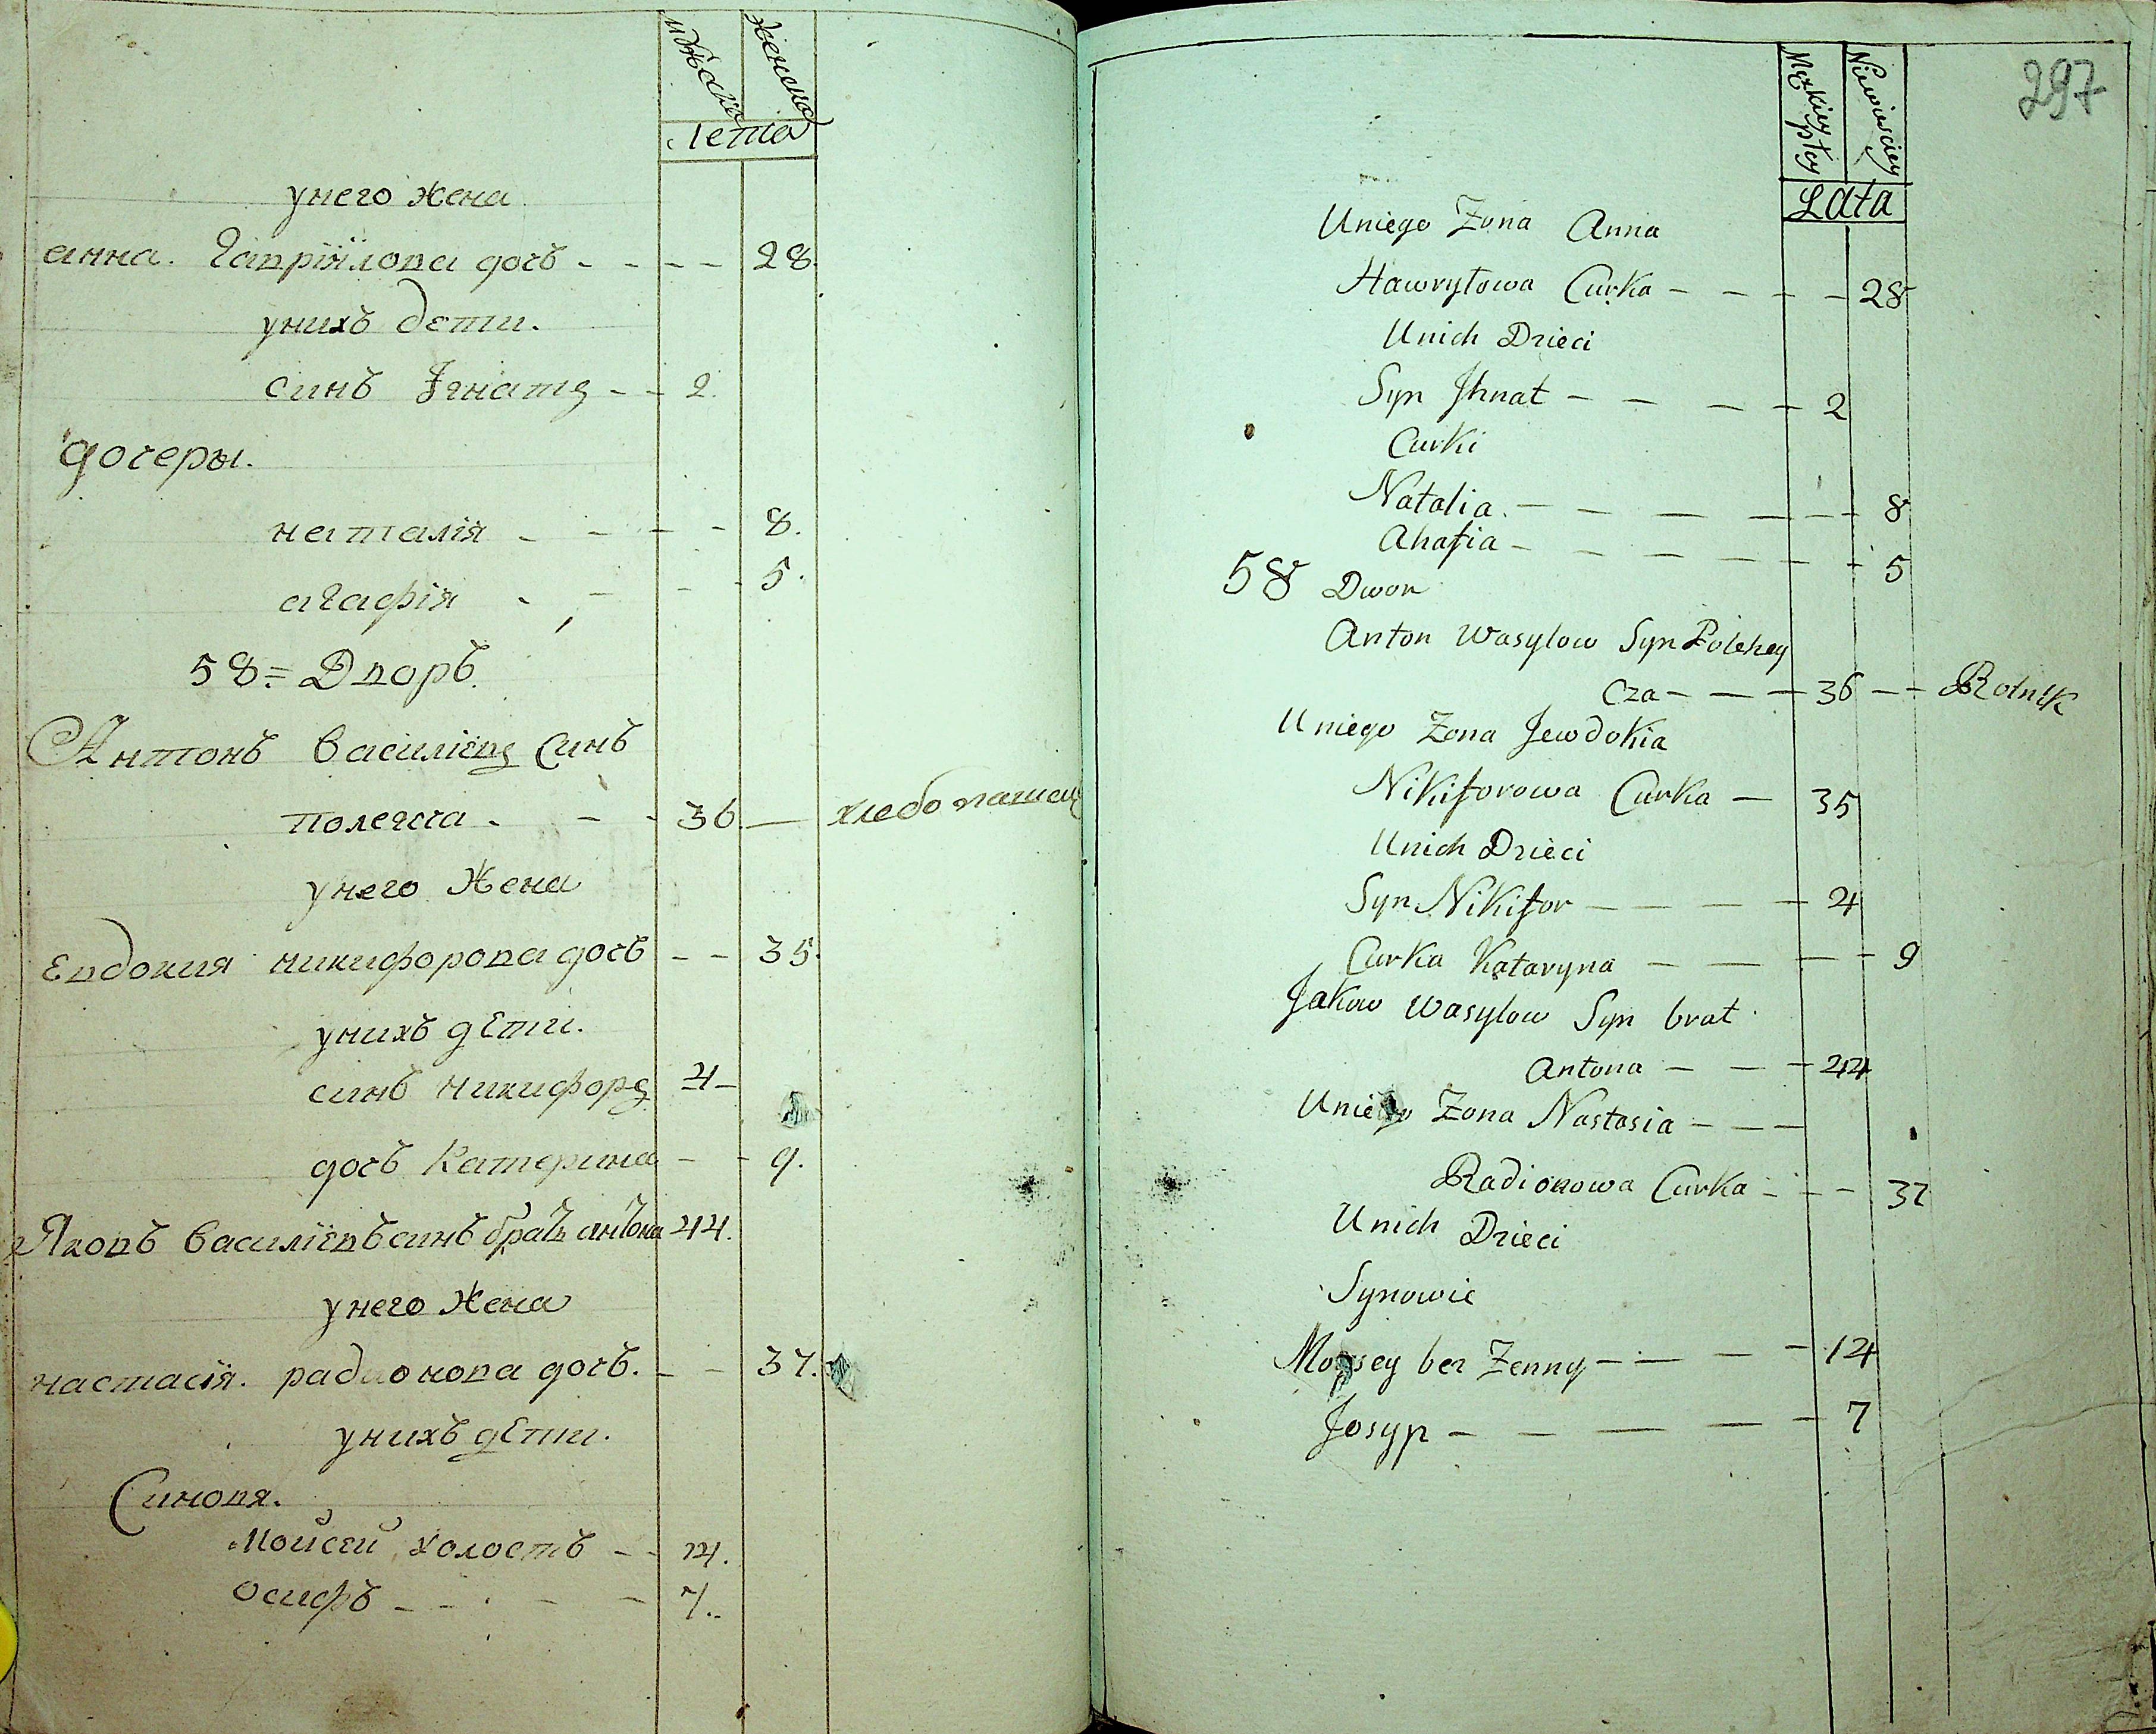 мужска женска
лета
унего жена
анна. Гавриилова дочъ - - - - 28.
унихъ дети.
синъ Ігнатъ - - 2.
дочеры.
наталія - - - - 8.
агафія - - - - 5.
58 = Дворъ.
Антонъ василіевъ Синъ
полегча - - - 36. — хлебопашец
унего Жена
Евдокия никифорова дочъ - - 35.
унихъ дети.
синъ никифоръ 4 -
дочъ Катерина - - 9.
Яковъ василіевъ синъ братъ антона 44.
унего жена
настасія. радионова дочъ. - - 37.
унихъ дети.
Синовя.
Мойсей холостъ - - 14.
Осифъ - - - - 7.
297
Męzkiey płcy Niewiesciey
Lata
Uniego Zona Anna
Hawryłowa Curka - - - - 28
Unich Dzieci
Syn Jhnat - - - - 2
Curki
Natalia. - - - - - - 8
Ahafia - - - - - - - 5
58 Dwor
Anton Wasylow Syn Polehey
cza - - - 36 - - Rolnik
Uniego Zona Jewdokia
Nikiforowa Curka - 35
Unich Dzieci
Syn Nikifor - - - - 4
Curka Kataryna - - - - 9
Jakow Wasylow Syn brat
Antona - - - 44
Uniego Zona Nastasia - - -
Radionowa Curka - - - 37
Unich Dzieci
Synowie
Moysey bez Zenny - - - - 14
Josyp - - - - - 7